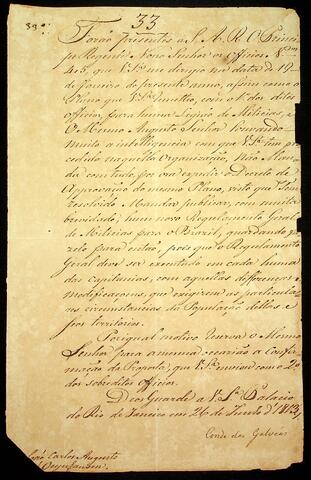 33
39
Forão presentes a S. A. R. O Princi-
pe Regente Nosso Senhor os Officios
4, e 5, que V. Sª me dirigio na data de 19
de Janeiro do presente anno, assim como o
Plano que V. Sª remetteo, com o 1º dos ditos
officios, para huma Legião de Milicias, e
O Mesmo Augusto Senhor louvando
muito a intelligencia com que V. Sª tem pro-
cedido naquella Organização, Não Man-
da com tudo, por ora expedir o Decreto de
Approvação do mesmo Plano, visto que Tem
rezolvido Mandar publicar, com muita
brevidade, hum novo Regulamento Geral
de Milicias para o Brazil, guardando fa-
zelo para então, pois que o Regulamento
Geral deve ser executado em cada huma
das Capitanias, com aquellas differenças e
modificaçoens, que exigirem as particula-
res circunstancias da População dellas e
seos territorios.
Por igual motivo reserva o Mesmo
Senhor para a mesma occazião a Confir-
mação da Proposta, que V. Sª enviou com o 2º
dos sobreditos officios.
Deos Guarde a V. Sª Palacio
do Rio de Janeiro em 26 de Junho de 1813
Conde das Galveas
João Carlos Augusto
Oeynhausen.